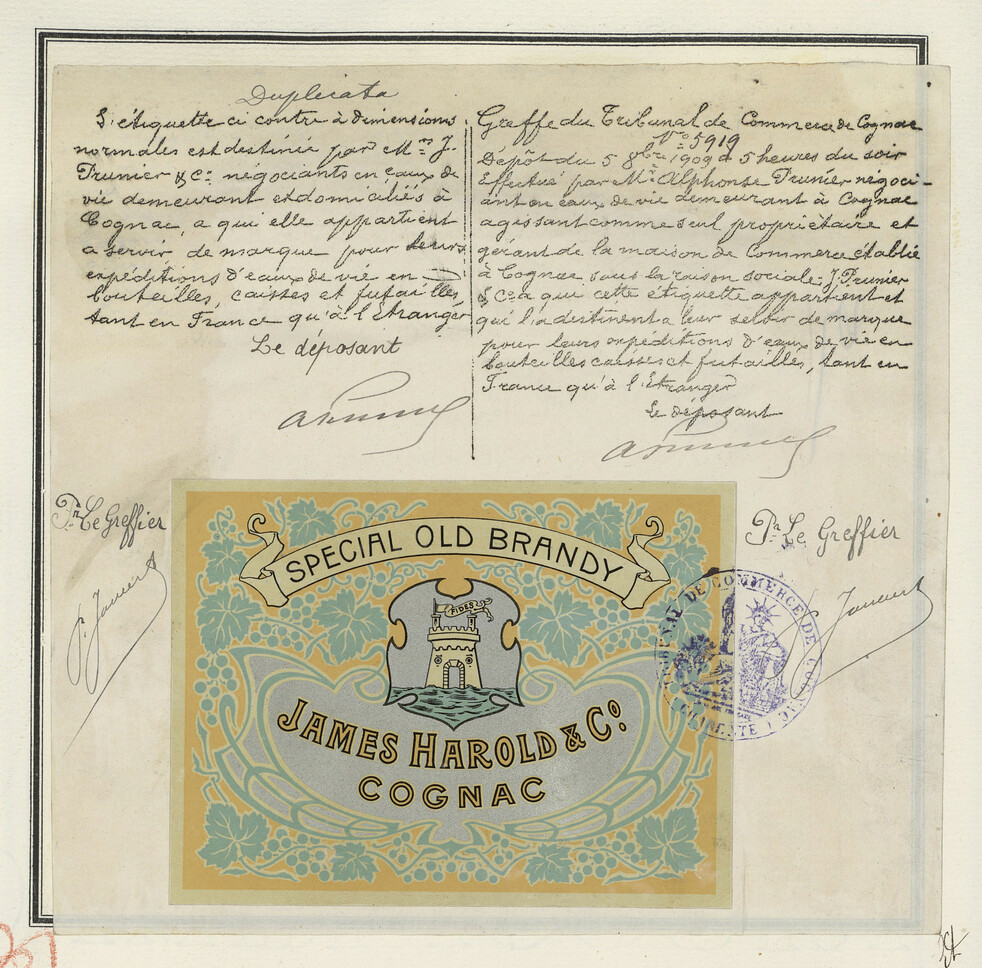 Duplicata
L'étiquette ci contre à dimensions
normales est destinée par Mrs J.
Prunier & Co négociants en eaux de
vie demeurant et domiciliés à
Cognac, a qui elle appartient
a servir de marque pour leurs
expéditions d'eaux de vie en
bouteilles, caisses et futailles,
tant en France qu'à l'étranger
Le déposant
Greffe du Tribunal de Commerce de Cognac
No 5919
Dépôt du 5 8bre 1909 à 5 heures du soir
Effectué par Mr Alphonse Prunier négoci-
ant en eaux de vie demeurant à Cognac
agissant comme seul propriétaire et
gérant de la maison de Commerce établie
à Cognac sous la raison sociale J. Prunier
& Co a qui cette étiquette appartient et
qui l'a destinent a leur servir de marque
pour leurs expéditions d'eaux de vie en
bouteilles caisses et futailles, tant en
France qu'à l'Etranger
Le déposant
Pr Le Greffier
Pr Le Greffier
SPECIAL OLD BRANDY
FIDES
JAMES HAROLD & Co
COGNAC
TRIBUNAL DE COMMERCE DE COGNAC